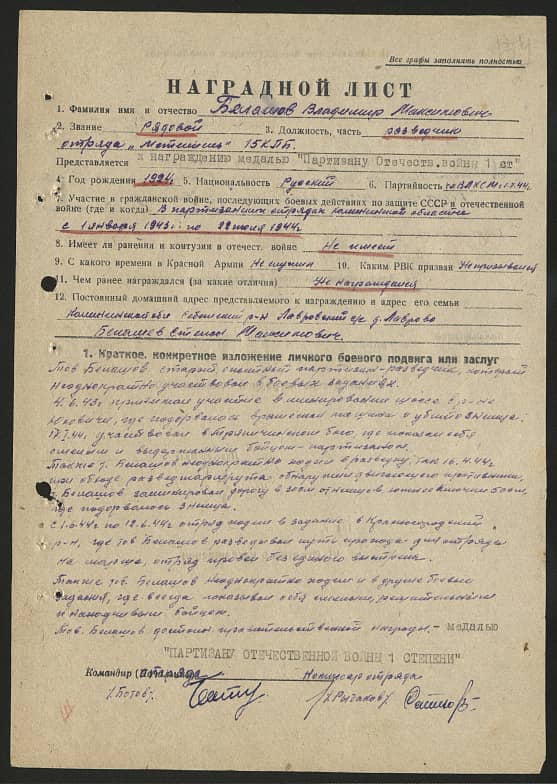 Все графы заполнять полностью
НАГРАДНОЙ ЛИСТ
1. Фамилия имя и отчество Белашов Владимир Максимович
2. Звание Рядовой 3. Должность, часть разведчик
отряда "Мститель" 15КЛП.
Представляется к награждению медалью "Партизану Отечеств.войны 1 ст"
4. Год рождения 1924г 5. Национальность Русский 6. Партийность
7. Участие в гражданской войне, последующих боевых действиях по защите СССР и отечественной
войне (где и когда) В партизанских отрядах Калининской области
с 1 января 1943г по 22 июля 1944г.
8. Имеет ли ранения и контузии в отечест. войне Не имеет
9. С какого времени в Красной Армии Не служил 10. Каким РВК призван Непризывался
11. Чем ранее награждался (за какие отличия) Не награждался
12. Постоянный домашний адрес представляемого к награждению и адрес его семьи
р-н Лавровский с/с д. Лаврово
Белашев Степан Максимович.
1. Краткое, конкретное изложение личного боевого подвига или заслуг
Тов Белашов старый опытный партизан-разведчик, который
неоднократно участвовал в боевых заданиях.
4.6.43г принимал участие в минировании шоссе
где подорвалась вражеская машина и убито
участвовал в бою, где показал себя
смелым и выдержанным бойцом-партизаном.
Также т. Белашов неоднократно ходил в разведку, так 16.4.44г
при обходе разведмаршрута обнаружив противника,
т. Белашов заминировал дорогу
где подорвалось
по 12.6.44г отряд ходил в задание в Красногородский
р-н, где тов Белашов разведывал пути прохода для отряда
на марше, отряд провёл без единого выстрела.
Также тов. Белашов неоднократно ходил и в другие боевые
задания, где всегда показывал себя смелым, решительным
и находчивым бойцом.
Тов. Белашов достоин правительственной награды - медалью
"ПАРТИЗАНУ ОТЕЧЕСТВЕННОЙ ВОЙНЫ 1 СТЕПЕНИ"
Командир отряда Комиссар отряда
/Рычаков/